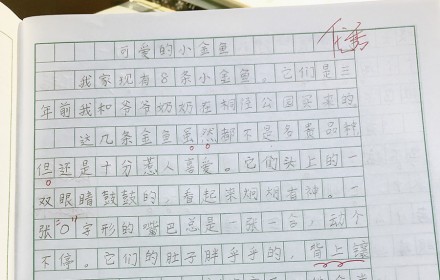 可爱的小金鱼
我家现有8条小金鱼。它们是三
年前我和爷爷奶奶在公园买来的
这几条金鱼虽然都不是名贵品种
但还是十分惹人喜爱。它们头上的一
双眼睛鼓鼓的，看起来炯炯有神。一
张"O"字形的嘴巴总是一张一合，动个
不停。它们的肚子胖乎乎的，背上镶